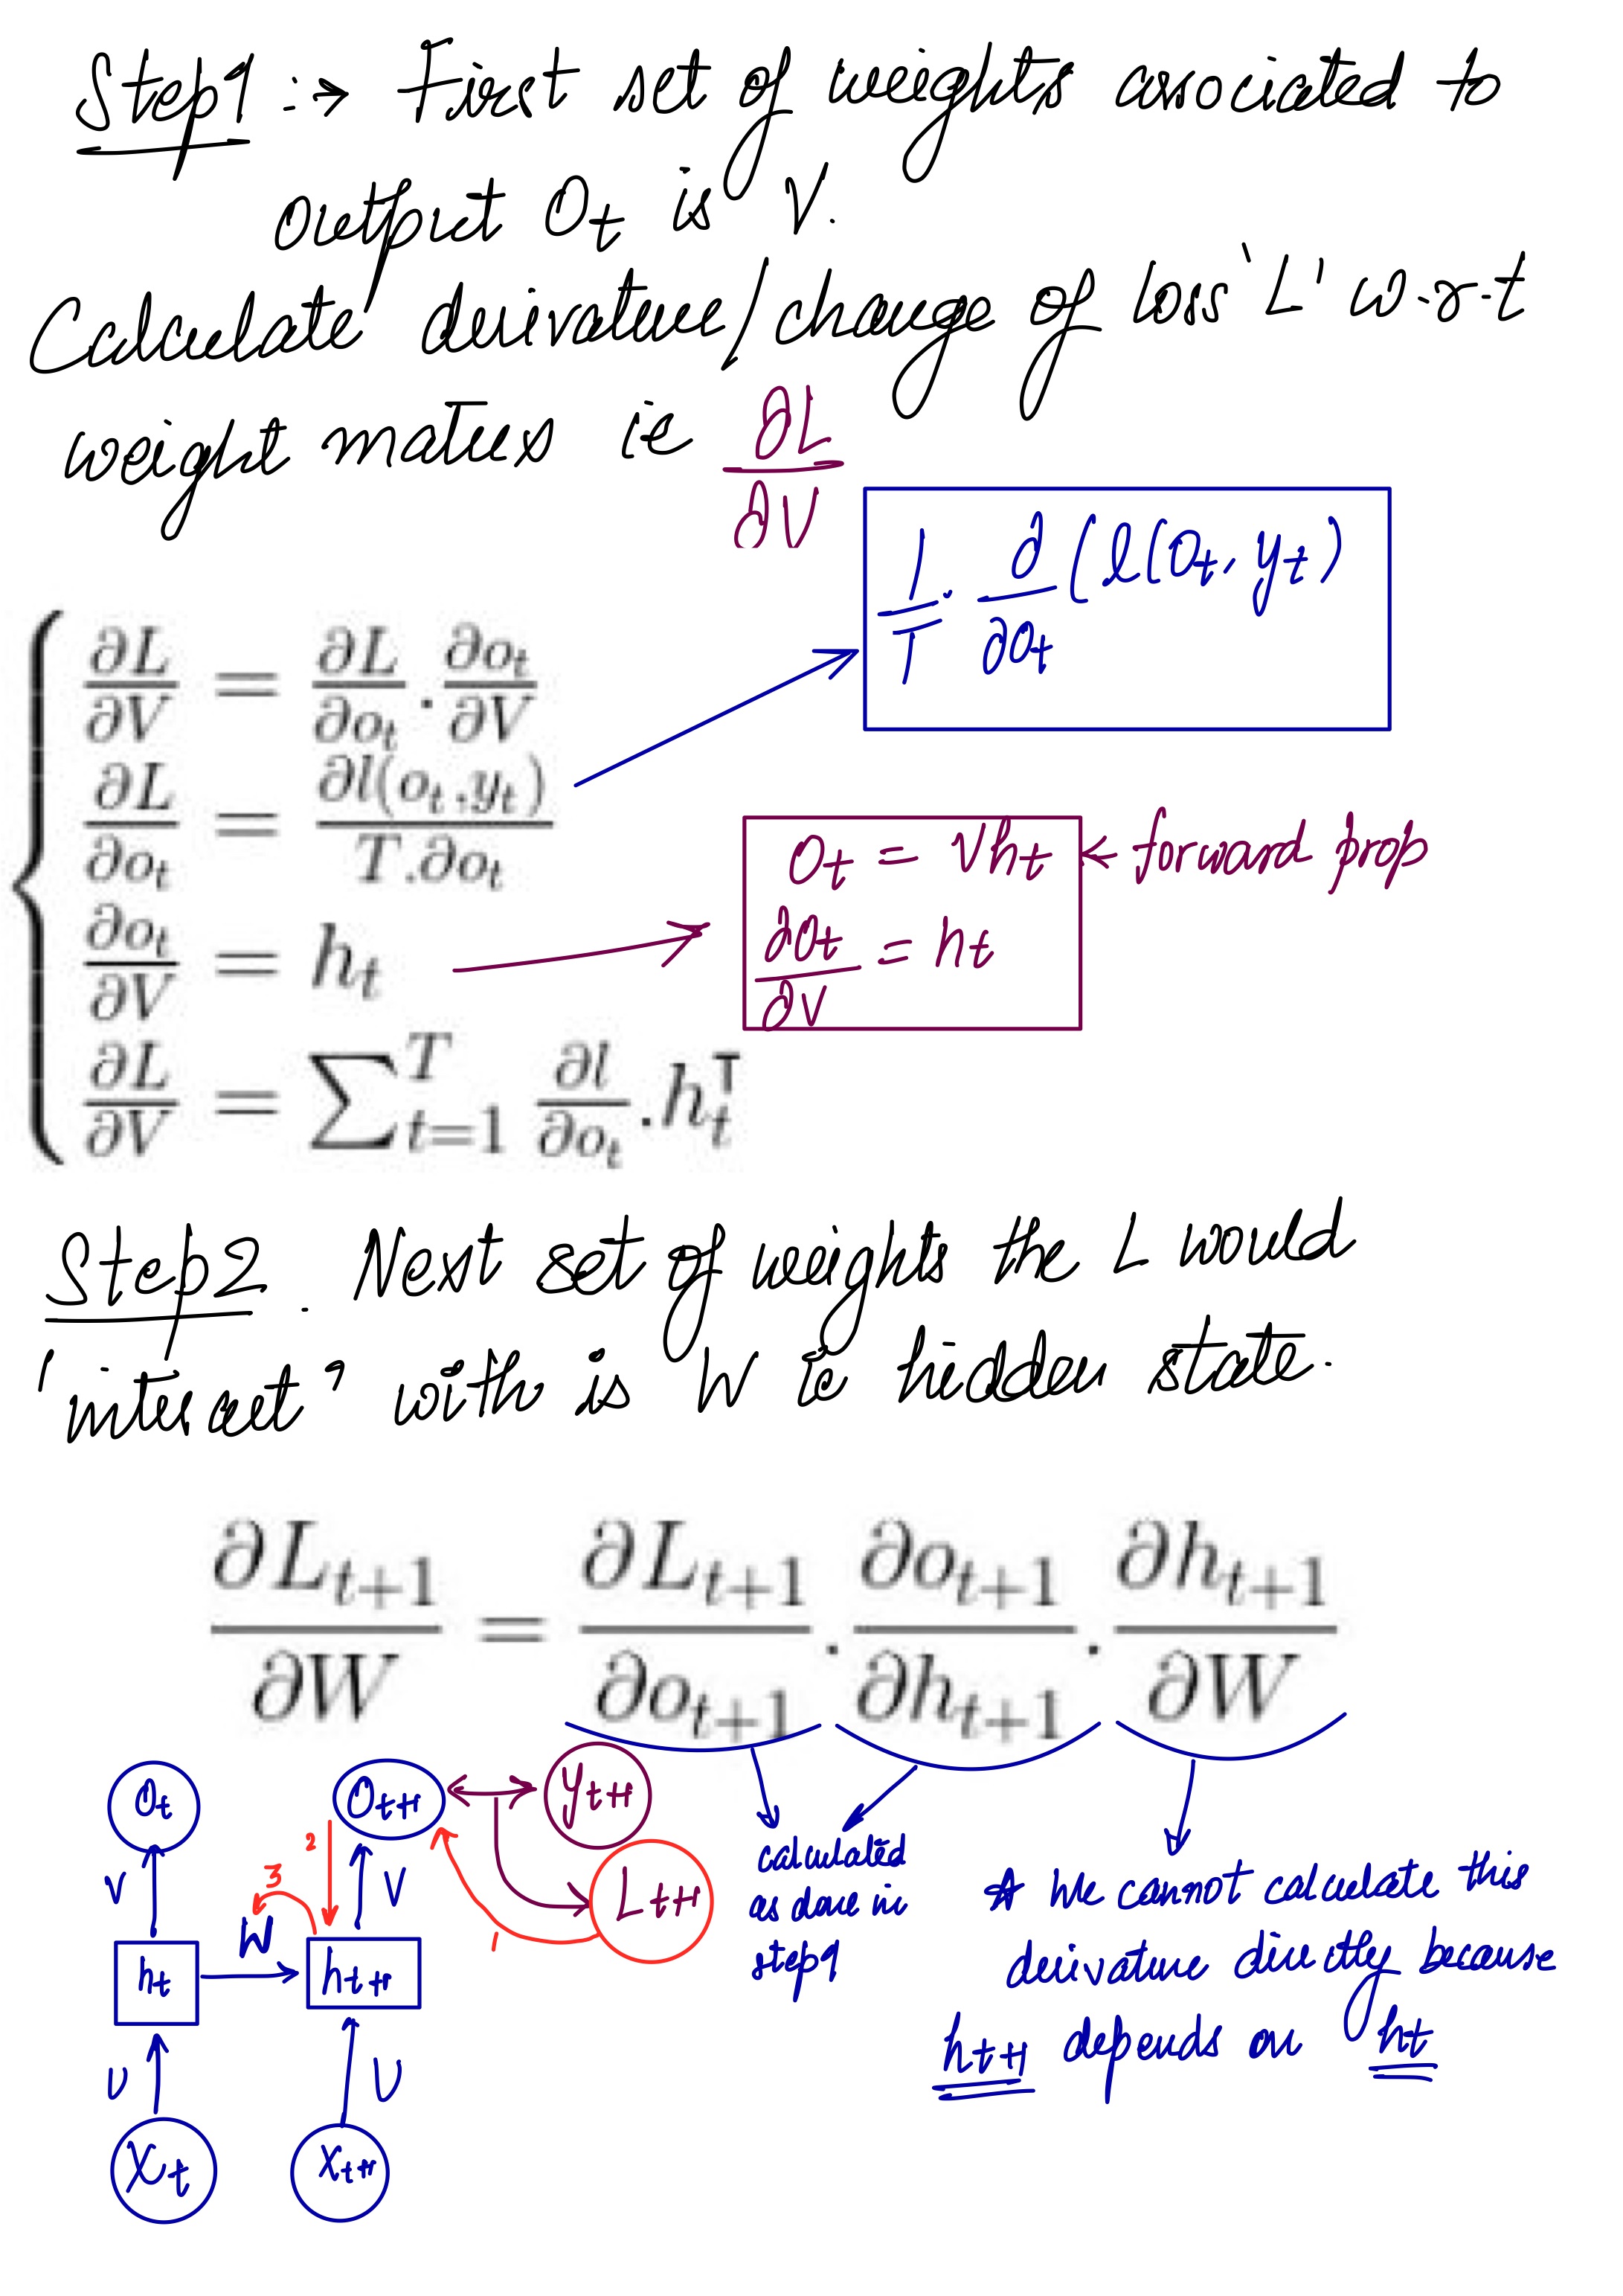 Step1 :→ First set of weights associated to
output Ot is V.
Calculate derivative/change of loss 'L' w.r.t
weight matrix ie ∂L/∂V
1/T · ∂/∂Ot (l(Ot, yt)
∂L/∂V = ∂L/∂o_t . ∂o_t/∂V
∂L/∂o_t = ∂l(o_t,y_t)/T.∂o_t
Ot = Vht ← forward prop
∂o_t/∂V = h_t
∂Ot/∂V = ht
∂L/∂V = ∑_{t=1}^{T} ∂l/∂o_t . h_t^T
Step2. Next set of weights the L would
'interact' with is W ie hidden state.
∂L_{t+1}/∂W = ∂L_{t+1}/∂o_{t+1} . ∂o_{t+1}/∂h_{t+1} . ∂h_{t+1}/∂W
Ot
Ot+1
yt+1
Lt+1
V
V
1
2
3
W
ht
ht+1
U
U
Xt
Xt+1
calculated
as done in
step1
* We cannot calculate this
derivative directly because
ht+1 depends on ht